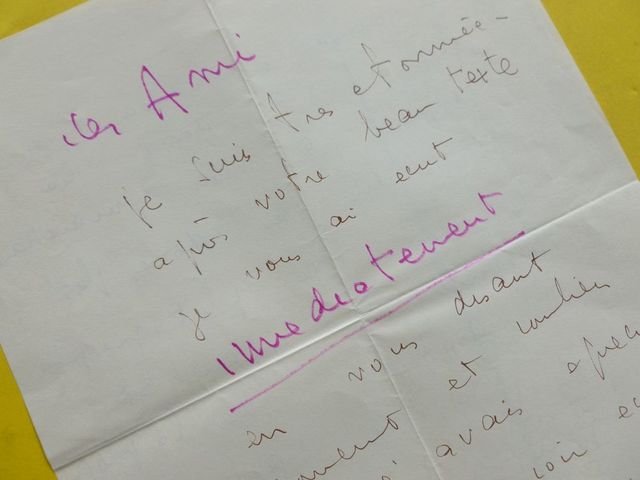 Ami
je suis très etonnée -
après votre beau texte
je vous ai ecrit
immediatement
en vous disant
et combien
j'avais